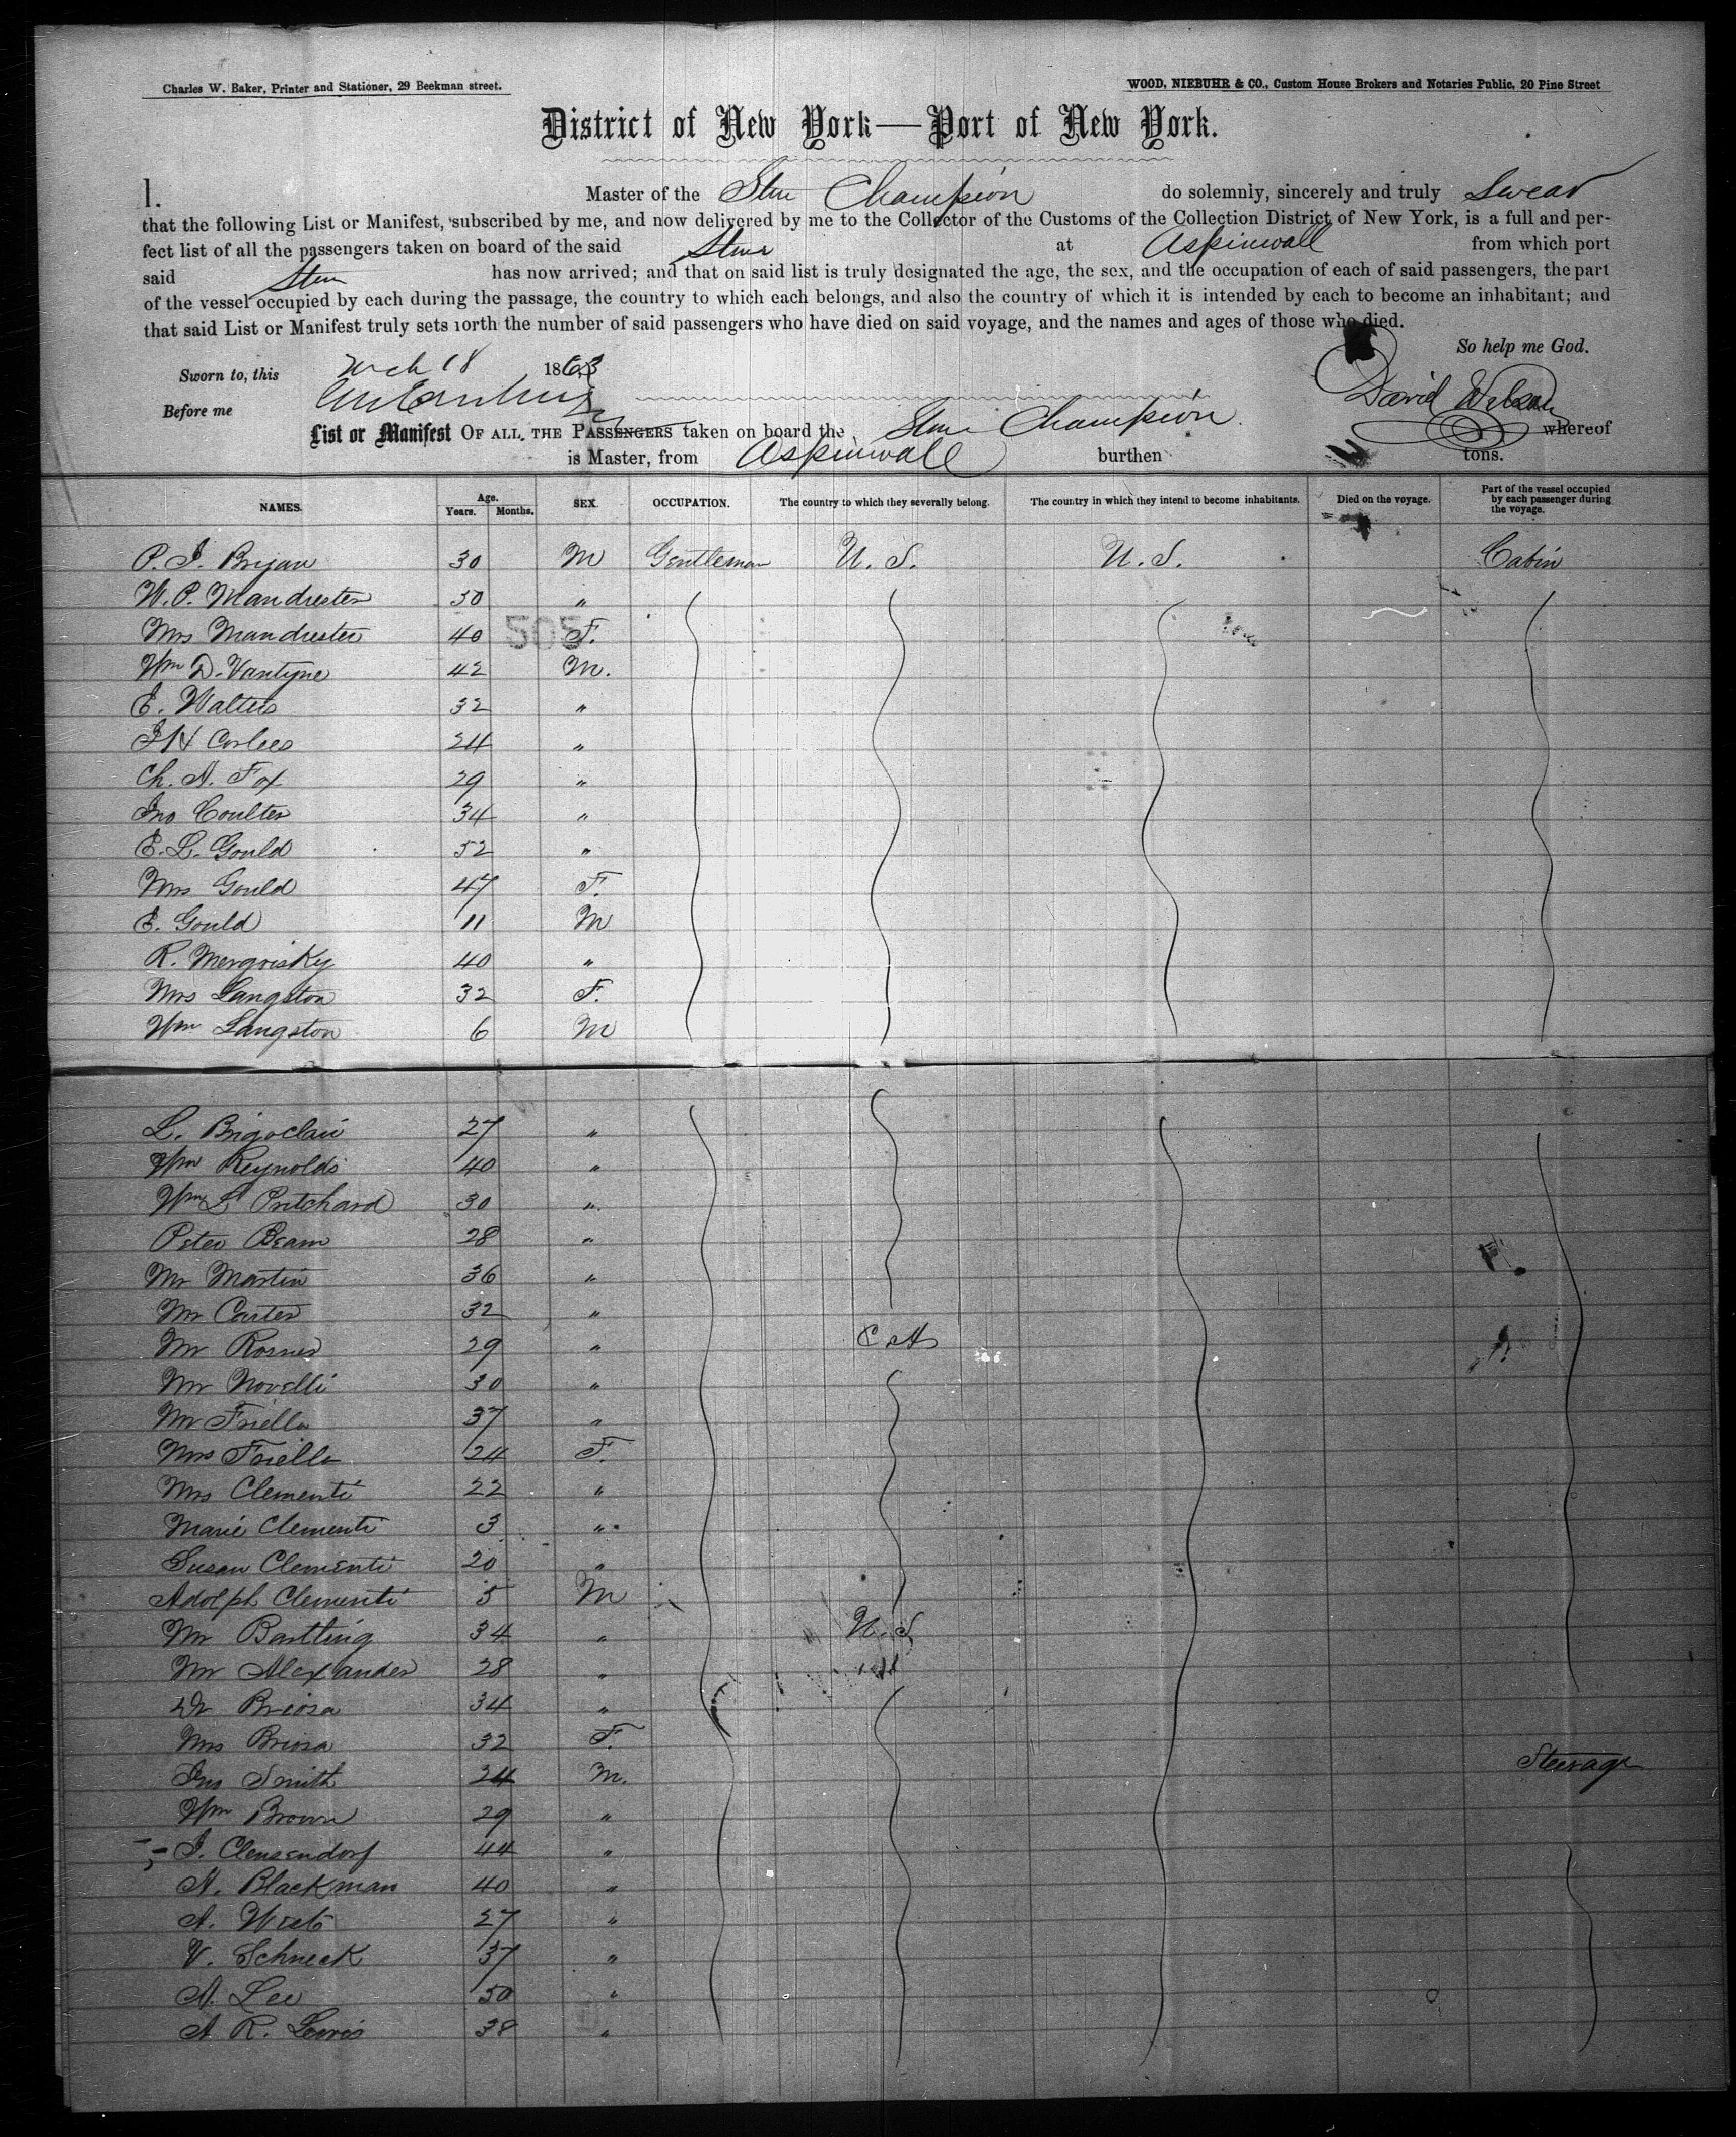 Charles W. Baker, Printer and Stationer, 29 Beekman street.
WOOD, NIEBUHR & CO., Custom House Brokers and Notaries Public, 20 Pine Street
District of New York—Port of New York.
I. Master of the Stmr Champion do solemnly, sincerely and truly Swear
that the following List or Manifest, subscribed by me, and now delivered by me to the Collector of the Customs of the Collection District of New York, is a full and per-
fect list of all the passengers taken on board of the said Stmr at Aspinwall from which port
said Stmr has now arrived; and that on said list is truly designated the age, the sex, and the occupation of each of said passengers, the part
of the vessel occupied by each during the passage, the country to which each belongs, and also the country of which it is intended by each to become an inhabitant; and
that said List or Manifest truly sets forth the number of said passengers who have died on said voyage, and the names and ages of those who died.
So help me God.
Sworn to, this Mch 18 1863
Before me
David Wilson
List or Manifest OF ALL THE PASSENGERS taken on board the Stmr Champion whereof
is Master, from Aspinwall burthen tons.
NAMES. Age. Years. Months. SEX. OCCUPATION. The country to which they severally belong. The country in which they intend to become inhabitants. Died on the voyage. Part of the vessel occupied by each passenger during the voyage.
P. J. Bryan 30 M Gentleman U. S. U. S. Cabin
W. P. Manchester 30 "
Mrs Manchester 40 505 F.
Wm D. Vantyne 42 M.
E. Walters 32 "
J H Corlees 24 "
Ch. N. Fox 29 "
Jno Coulter 34 "
E. L. Gould 52 "
Mrs Gould 47 F.
E. Gould 11 M
R. Mergoisky 40 "
Mrs Langston 32 F.
Wm Langston 6 M
L. Brigoclair 27 "
Wm Reynolds 40 "
Wm L Pritchard 30 "
Peter Beam 28 "
Mr Martin 36 "
Mr Carter 32 "
Mr 29 " C A
Mr Novelli 30 "
Mr Friella 37 "
Mrs Friella 24 F.
Mrs Clementi 22 "
Marie Clementi 3 "
Susan Clementi 20 "
Adolph Clementi 5 M
Mr Bartling 34 " U. S
Mr Alexander 28 "
Dr Briosa 34 "
Mrs Briosa 32 F.
Jno Smith 24 M. Steerage
Wm Brown 29 "
J. Clensendorf 44 "
A. Blackman 40 "
A. 27 "
V. Schneck 37 "
A. Lee 50 "
A R. Lewis 38 "